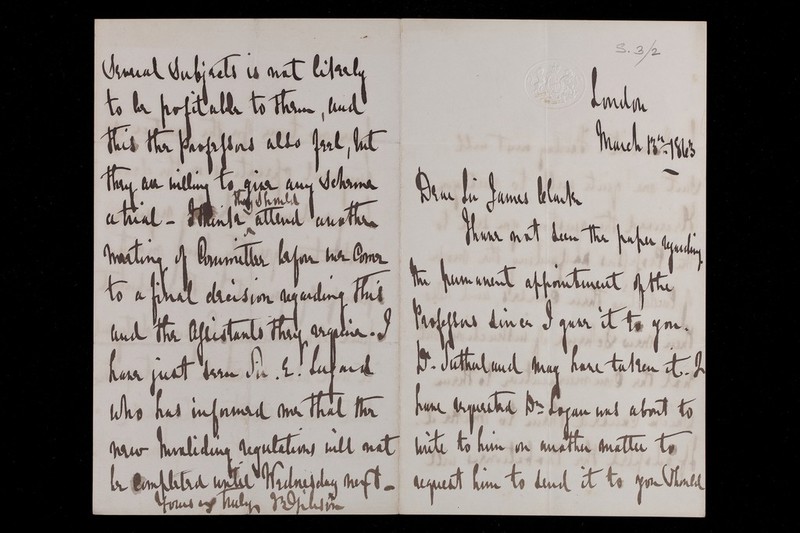 S. 3/2
London
March 13th 1863
Dear Sir James Clark
I have not seen the paper regarding
the permanent appointment of the
Professors since I gave it to you.
Dr. Sutherland may have taken it. I
have requested Dr Logan was about to
write to him on another matter to
request him to send it to you should
Several Subjects is not likely
to be profitable to them, and
this the Professors also feel, but
they are willing to give any Scheme
a trial - I think they should attend another
meeting of Committee before we come
to a final decision regarding this
and the Assistants they require. I
have just seen Sir. E. Lugard
who has informed me that the
new Invaliding regulations will not
be completed until Wednesday next -
Yours very truly